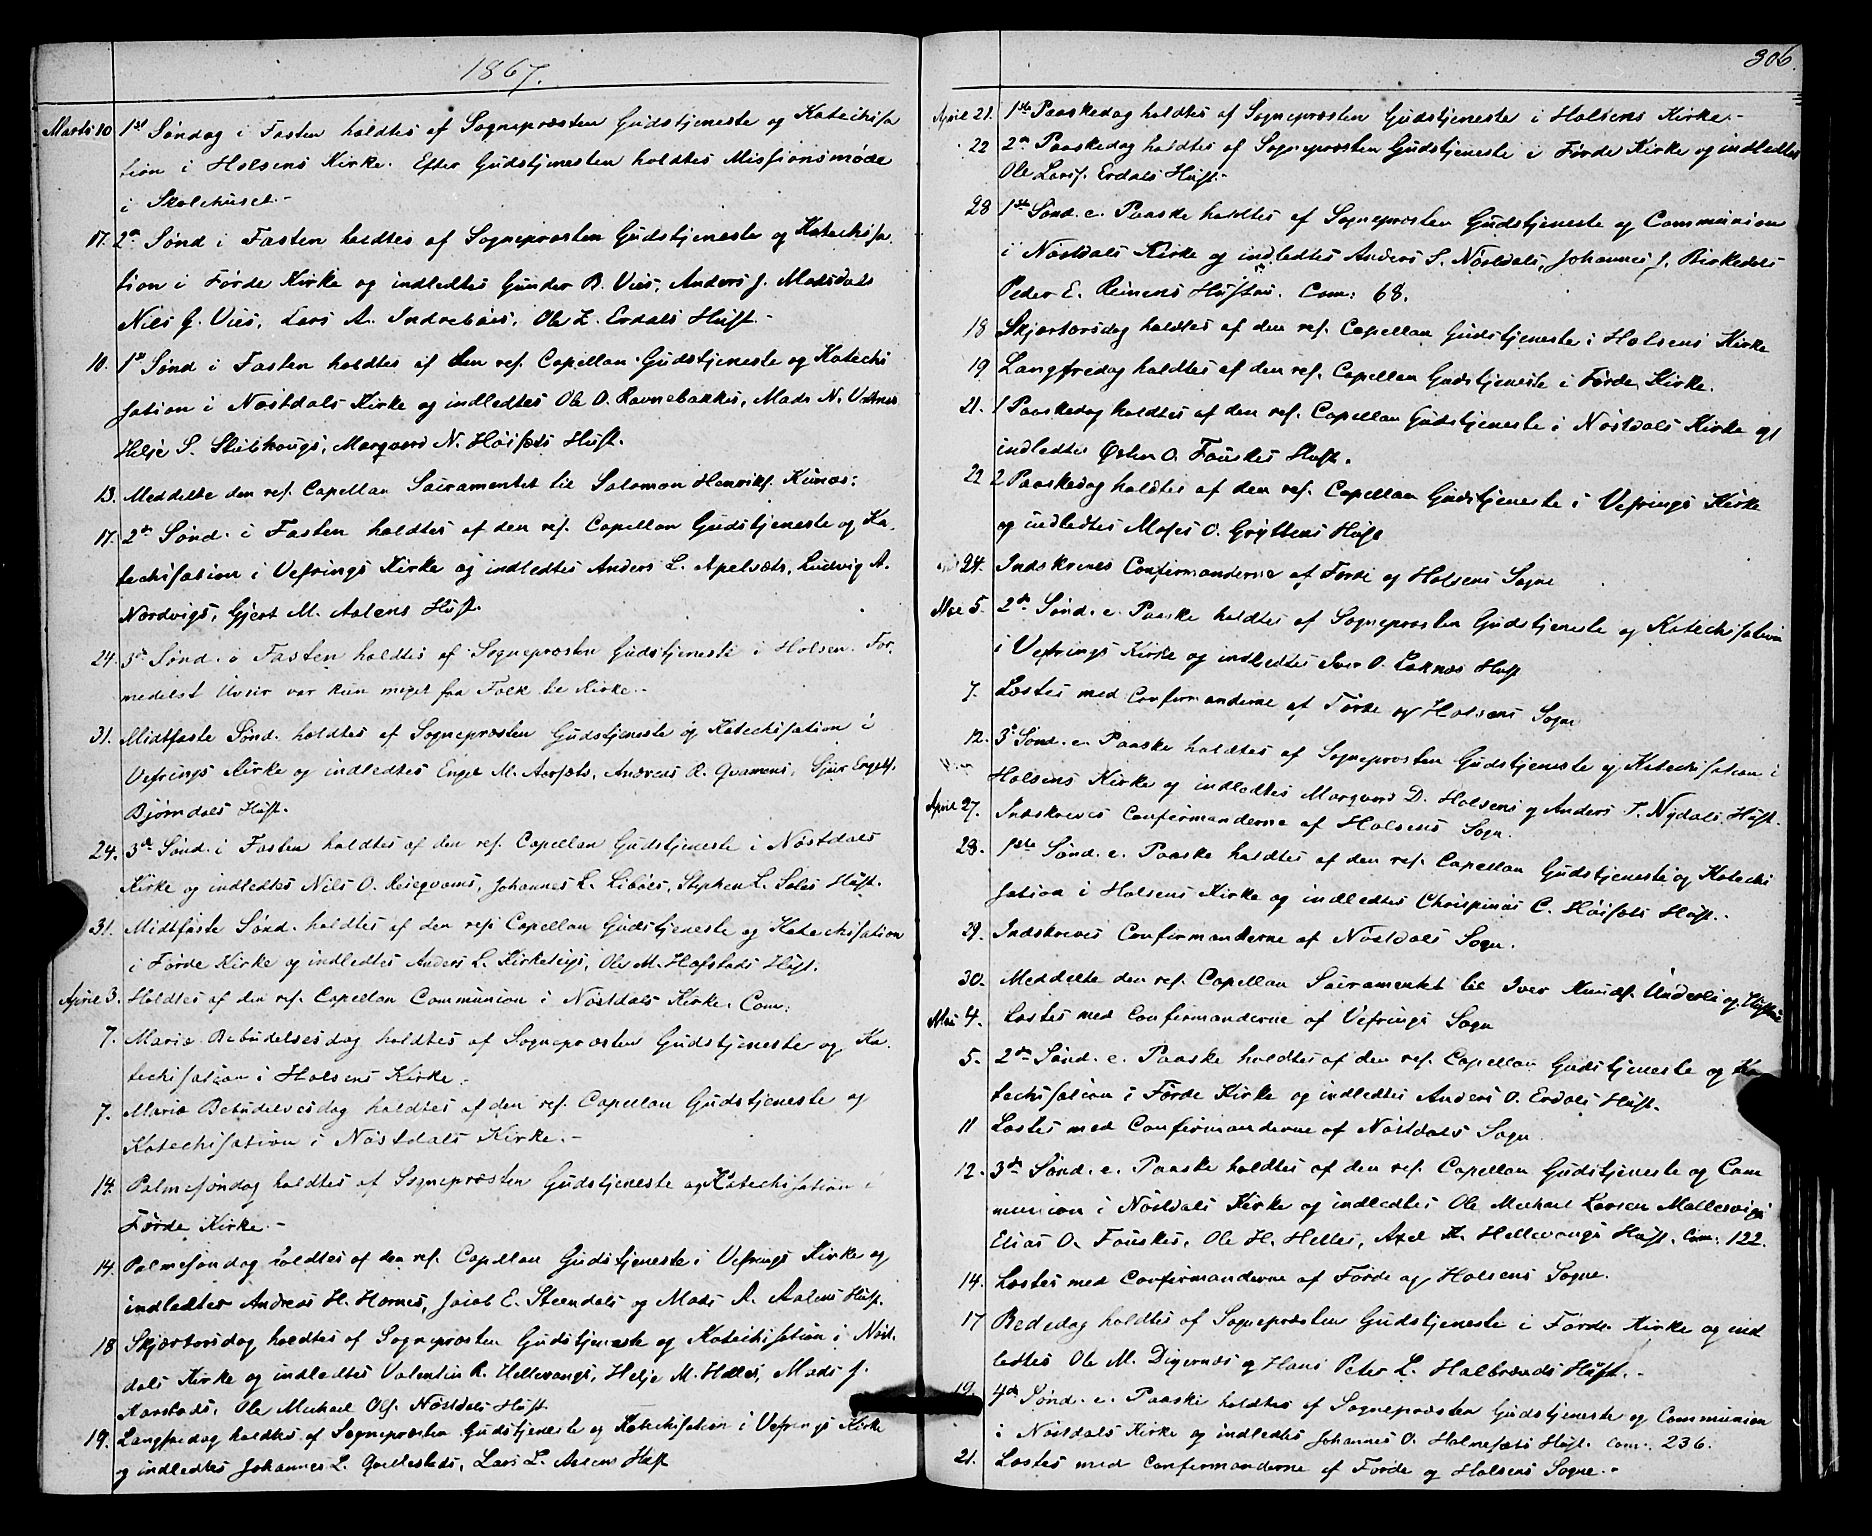 1867.
Marts 10 1st Søndag i Fasten holdtes af Sognepræsten Gudstjeneste og Katechisa
tion i Holsens Kirke. Efter Gudstjenesten holdtes Missionsmøde
i Skolehuset.-
17. 2n Sønd i Fasten holdtes af Sognepræsten Gudstjeneste og Katechisa.
tion i Førde Kirke og indledtes Gunder B. Vies, Anders J. Madsdals
Niels G. Vies, Lars A. Indrebøes, Ole L. Erdals Hust.-
10. 1st Sønd i Fasten holdtes af den res. Capellan Gudstjeneste og Katechi
sation i Nøstdals Kirke og indledtes Ole O. Ravnebakkes, Mads N.
Helje S. Marqvard N. Høisæts Hust.
13. Meddelte den res. Capellan Sacramentet til Salomon Henriks.
17. 2n Sønd. i Fasten holdtes af den res. Capellan Gudstjeneste og Ka.
techisation i Vefrings Kirke og indledtes Anders L. Apelsæts, Ludvig A.
Nordvigs, Gjert M. Aalens Hust.
24. 3n Sønd. i Fasten holdtes af Sognepræsten Gudstjeneste i Holsen. For.
medelst Uveir var kun meget faa Folk til Kirke.-
31. Midtfaste Sønd. holdtes af Sognepræsten Gudstjeneste og Katechisation i
Vefrings Kirke og indledtes Engel M. Aarsæts, Andreas R. Qvamens, Sjur
Bjørndals Hust.
24. 3n Sønd. i Fasten holdtes af den res. Capellan Gudstjeneste i Nøstdals
Kirke og indledtes Nils O. Johannes L. Libøes, Stephen L. Soles Hust.
31. Midtfaste Sønd. holdtes af den res. Capellan Gudstjeneste og Katechisation
i Førde Kirke og indledtes Anders L. Ole M. Hafstads Hust.
April 3. Holdtes af den res. Capellan Communion i Nøstdals Kirke. Com:
7. Mariæ Bebudelsesdag holdtes af Sognepræsten Gudstjeneste og Ka.
techisation i Holsens Kirke.
7. Mariæ Bebudelsesdag holdtes af den res. Capellan Gudstjeneste og
Katechisation i Nøstdals Kirke.-
14. Palmesøndag holdtes af Sognepræsten Gudstjeneste og Katechisation i
Førde Kirke.-
14. Palmesøndag holdtes af den res. Capellan Gudstjeneste i Vefrings Kirke og
indledtes Andreas H. Hornes, Jacob E. Steendals og Mads A. Aalens Hust.
18 Skjærtorsdag holdtes af Sognepræsten Gudstjeneste og Katechisation i Nøst.
dals Kirke og indledtes Valentin R. Hellevangs, Helje M. Helles, Mads J.
Karstads, Ole Michael Ols. Nøstdals Hust.
19. Langfredag holdtes af Sognepræsten Gudstjeneste og Katechisation i Vefrings Kirke
og indledtes Johannes L. Lars L. Aasens Hust
306.
April 21. 1ste Paaskedag holdtes af Sognepræsten Gudstjeneste i Holsens Kirke.-
22 2n Paaskedag holdtes af Sognepræsten Gudstjeneste i Førde Kirke og indledtes
Ole Lars. Erdals Hust.-
28 1ste Sønd. e. Paaske holdtes af Sognepræsten Gudstjeneste og Communion
i Nøstdals Kirke og indledtes Anders S. Nøstdals, Johannes J. Birkedals
Peder E. Reinens Hustru. Com: 68.
18 Skjærtorsdag holdtes af den res. Capellan Gudstjeneste i Holsens Kirke
19 Langfredag holdtes af den res. Capellan Gudstjeneste i Førde Kirke.
21. 1 Paaskedag holdtes af den res. Capellan Gudstjeneste i Nøstdals Kirke og
indledtes Østen O. Fauskes Hust.
22 2 Paaskedag holdtes af den res. Capellan Gudstjeneste i Vefrings Kirke
og indledtes Moses O. Gryttens Hust
24. Indskreves Confirmanderne af Førde og Holsens Sogne
Mai 5. 2n Sønd. e. Paaske holdtes af Sognepræsten Gudstjeneste og Katechisation
i Vefrings Kirke og indledtes Iver O. Hust
7. Læstes med Confirmanderne af Førde og Holsens Sogne
12. 3d Sønd. e. Paaske holdtes af Sognepræsten Gudstjeneste og Katechisation i
Holsens Kirke og indledtes Marqvard D. Holsens og Anders T. Nydals Hust.
April 27. Indskreves Confirmanderne af Holsens Sogn.
28. 1ste Sønd. e. Paaske holdtes af den res. Capellan Gudstjeneste og Katechi
sation i Holsens Kirke og indledtes Chrispinus C. Høisæts Hust.-
29. Indskreves Confirmanderne af Nøstdals Sogn.
30. Meddelte den res. Capellan Sacramentet til Iver Knuds. Underli og Hustru
Mai 4. Læstes med Confirmanderne af Vefrings Sogn
5. 2n Sønd. e. Paaske holdtes af den res. Capellan Gudstjeneste og Ka
techisation i Førde Kirke og indledtes Anders O. Erdals Hust.
11 Læstes med Confirmanderne af Nøstdals Sogn
12. 3de Sønd. e. Paaske holdtes af den res. Capellan Gudstjeneste og Com
munion i Nøstdals Kirke og indledtes Ole Michael Larsen Mallesvigs
Elias O. Fauskes, Ole H. Helles, Axel K. Hellevangs Hust. Com: 122.
14. Læstes med Confirmanderne af Førde og Holsens Sogne.
17 Bededag holdtes af Sognepræsten Gudstjeneste i Førde Kirke og ind
ledtes Ole M. Digernæs og Hans Peter L. Halbrænds Hust.-
19. 4de Sønd. e. Paaske holdtes af Sognepræsten Gudstjeneste og Communion
i Nøstdals Kirke og indledtes Johannes O. Holmesæts Hust. Com. 236.
21. Læstes med Confirmanderne af Førde og Holsens Sogne.-